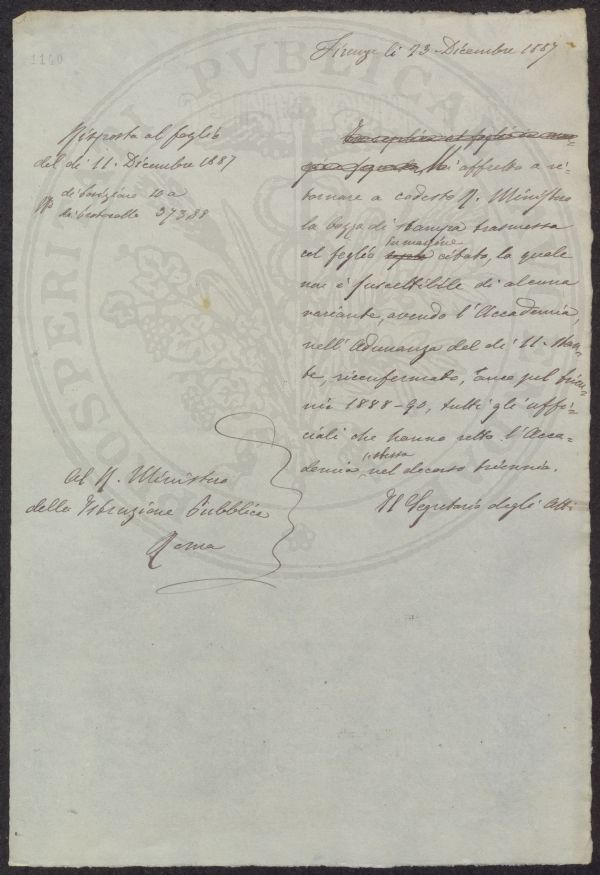 1140
Firenze li 23. Dicembre 1887
Risposta al foglio
del dì 11. Dicembre 1887
di Posizione 20 a
N° di Protocollo 37388
Mi affretto a ri-
tornare a codesto R. Ministro
la bozza di stampa trasmessa
col foglio in margine citato, la quale
non è suscettibile di alcuna
variante, avendo l'Accademia,
nell'Adunanza del dì 11. stan-
te, riconfermato, anco pel trien-
nio 1888-90, tutti gli uffi-
ciali che hanno retto l'Acca-
demia stessa nel decorso triennio.
Il Segretario degli Atti
Al R. Ministro
della Istruzione Pubblica
Roma
PROSPERITATI PUBLICAE